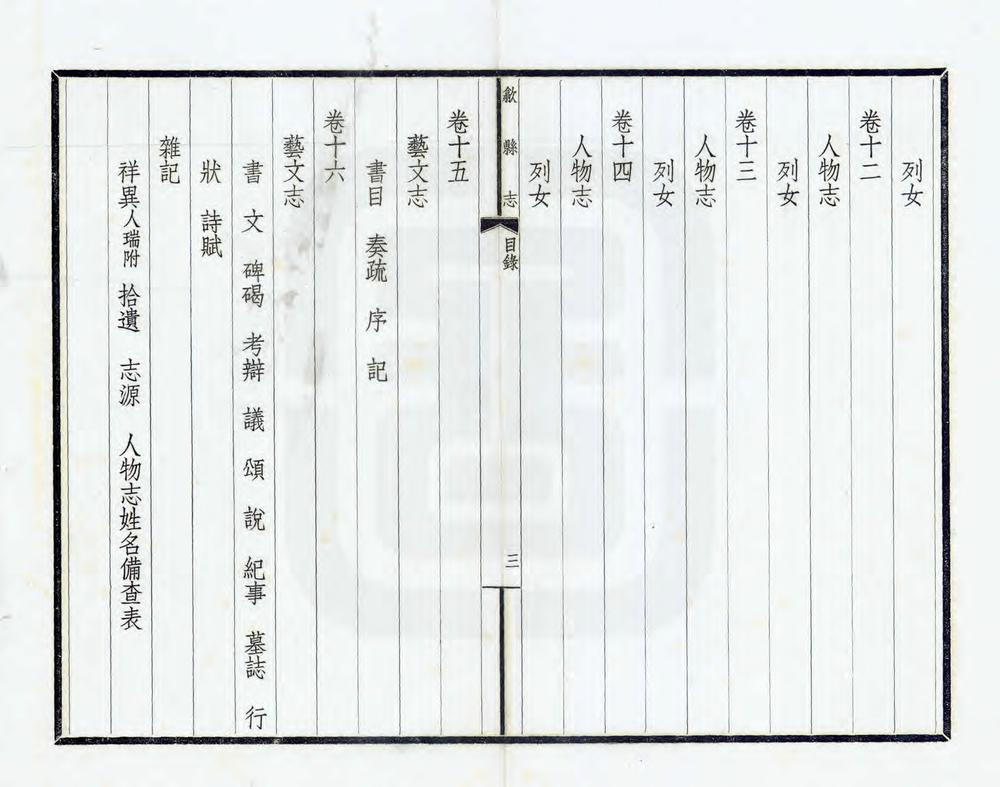 列女
卷十二
人物志
列女
卷十三
人物志
列女
卷十四
人物志
列女
歙縣志
目錄
三
卷十五
藝文志
書目 奏疏 序 記
卷十六
藝文志
書 文 碑碣 考辯 議 頌 說 紀事 墓誌 行
狀 詩賦
雜記
祥異人瑞附 拾遺 志源 人物志姓名備查表